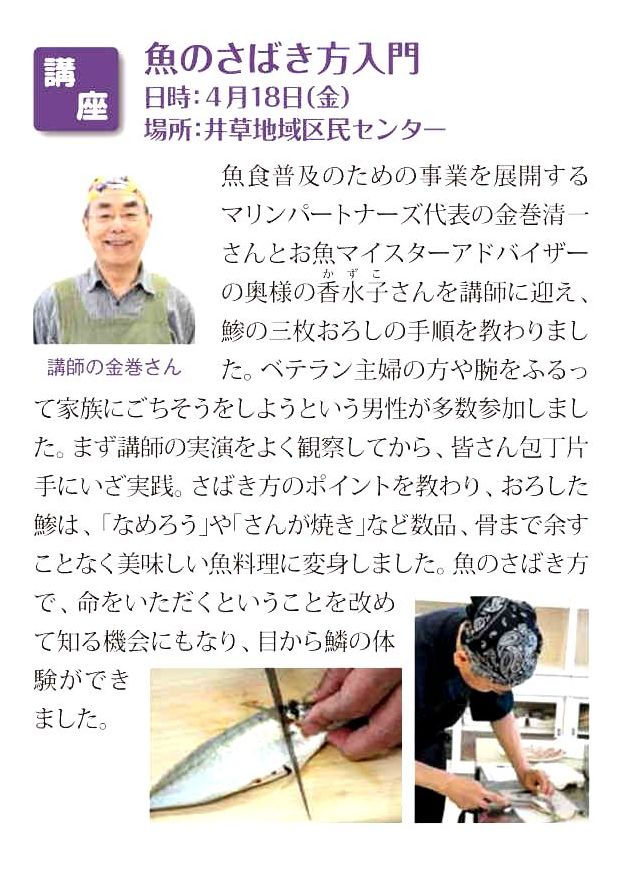 講座
魚のさばき方入門
日時：4月18日(金)
場所：井草地域区民センター
魚食普及のための事業を展開する
マリンパートナーズ代表の金巻清一
さんとお魚マイスターアドバイザー
かずこ
の奥様の香水子さんを講師に迎え、
鯵の三枚おろしの手順を教わりまし
た。ベテラン主婦の方や腕をふるっ
て家族にごちそうをしようという男性が多数参加しまし
た。まず講師の実演をよく観察してから、皆さん包丁片
手にいざ実践。さばき方のポイントを教わり、おろした
鯵は、「なめろう」や「さんが焼き」など数品、骨まで余す
ことなく美味しい魚料理に変身しました。魚のさばき方
で、命をいただくということを改め
て知る機会にもなり、目から鱗の体
験ができ
ました。
講師の金巻さん